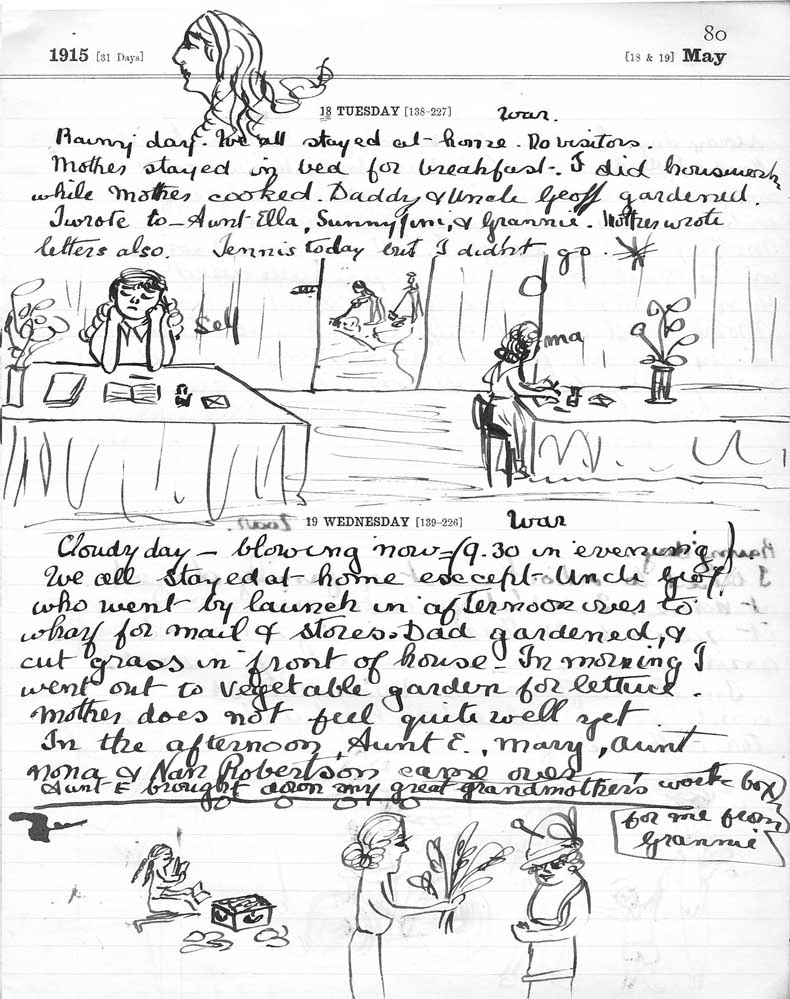 80
1915 [31 Days] [18 & 19] May
18 TUESDAY [138-227] War.
Rainy day. We all stayed at home. No visitors.
Mother stayed in bed for breakfast. I did housework
while Mother cooked. Daddy & Uncle Geoff gardened.
I wrote to - Aunt Ella, Sunny Jim, & Grannie. Mother wrote
letters also. Tennis today but I didn't go.
Self
ma
19 WEDNESDAY [139-226] War
Cloudy day - blowing now - (9.30 in evening).
We all stayed at home except Uncle Geof,
who went by launch in afternoon over to
wharf for mail & stores. Dad gardened, &
cut grass in front of house - In morning I
went out to vegetable garden for lettuce.
Mother does not feel quite well yet
In the afternoon, Aunt E., Mary, Aunt
Nona & Nan Robertson came over
Aunt E brought down my great grandmother's work-box
for me from
Grannie